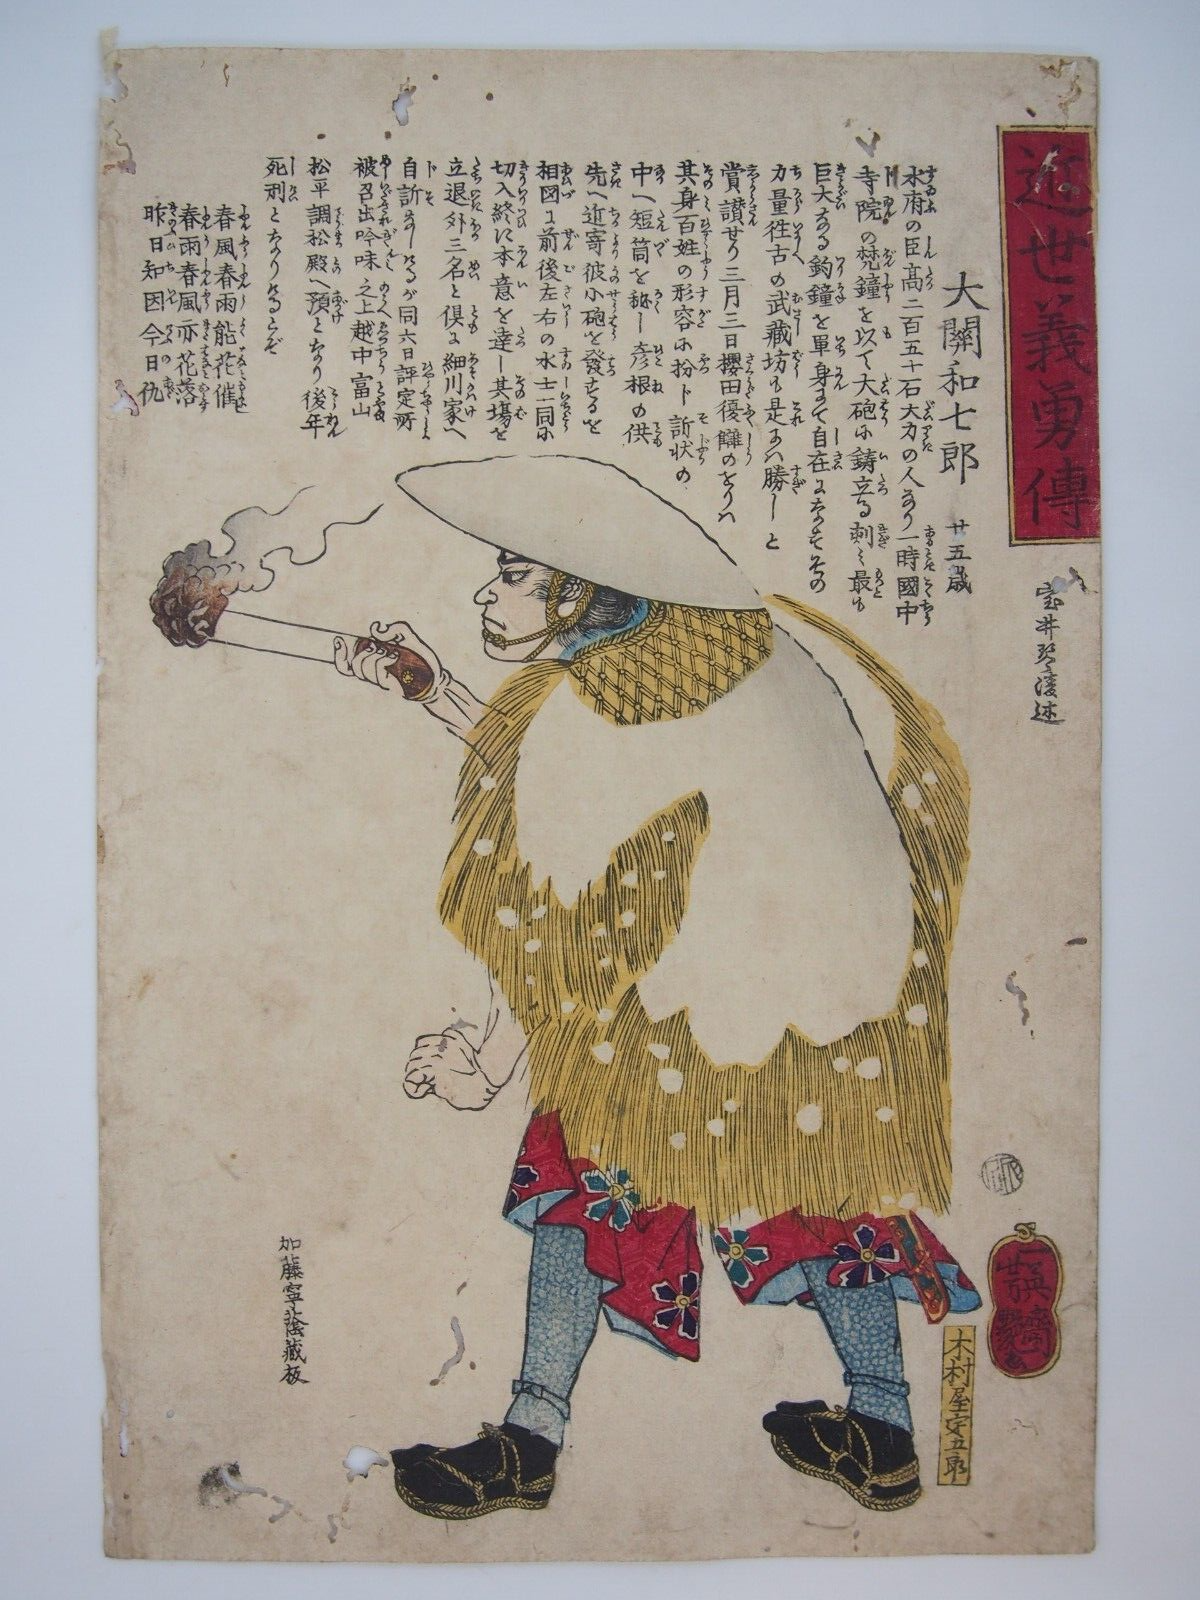 近世義勇傳
大關和七郎　廿五歳
水府の臣高二百五十石大力の人なり一時國中
寺院の梵鐘を以て大砲に鋳立る刺ミ最も
巨大なる釣鐘を單身にて自在になすその
力量徃古の武藏坊も是には勝しと
賞讃せり三月三日櫻田擾亂のをりハ
其身百姓の形容に扮ト訴状の
中へ短筒を秘し彦根の供
先へ近寄彼小砲を發せるを
相図に前後左右の水士一同に
切入終に本意を達し其場を
立退外三名と倶に細川家へ
自訴なしけるが同六日評定所
被召出吟味之上越中富山
松平調松殿へ預となり後年
死刑となりけるとぞ
春風春雨能花催
春雨春風亦花落
昨日知因今日仇
宝井琴凌述
一英齋芳艶画
木村屋安五郎
加藤寧蔭藏板